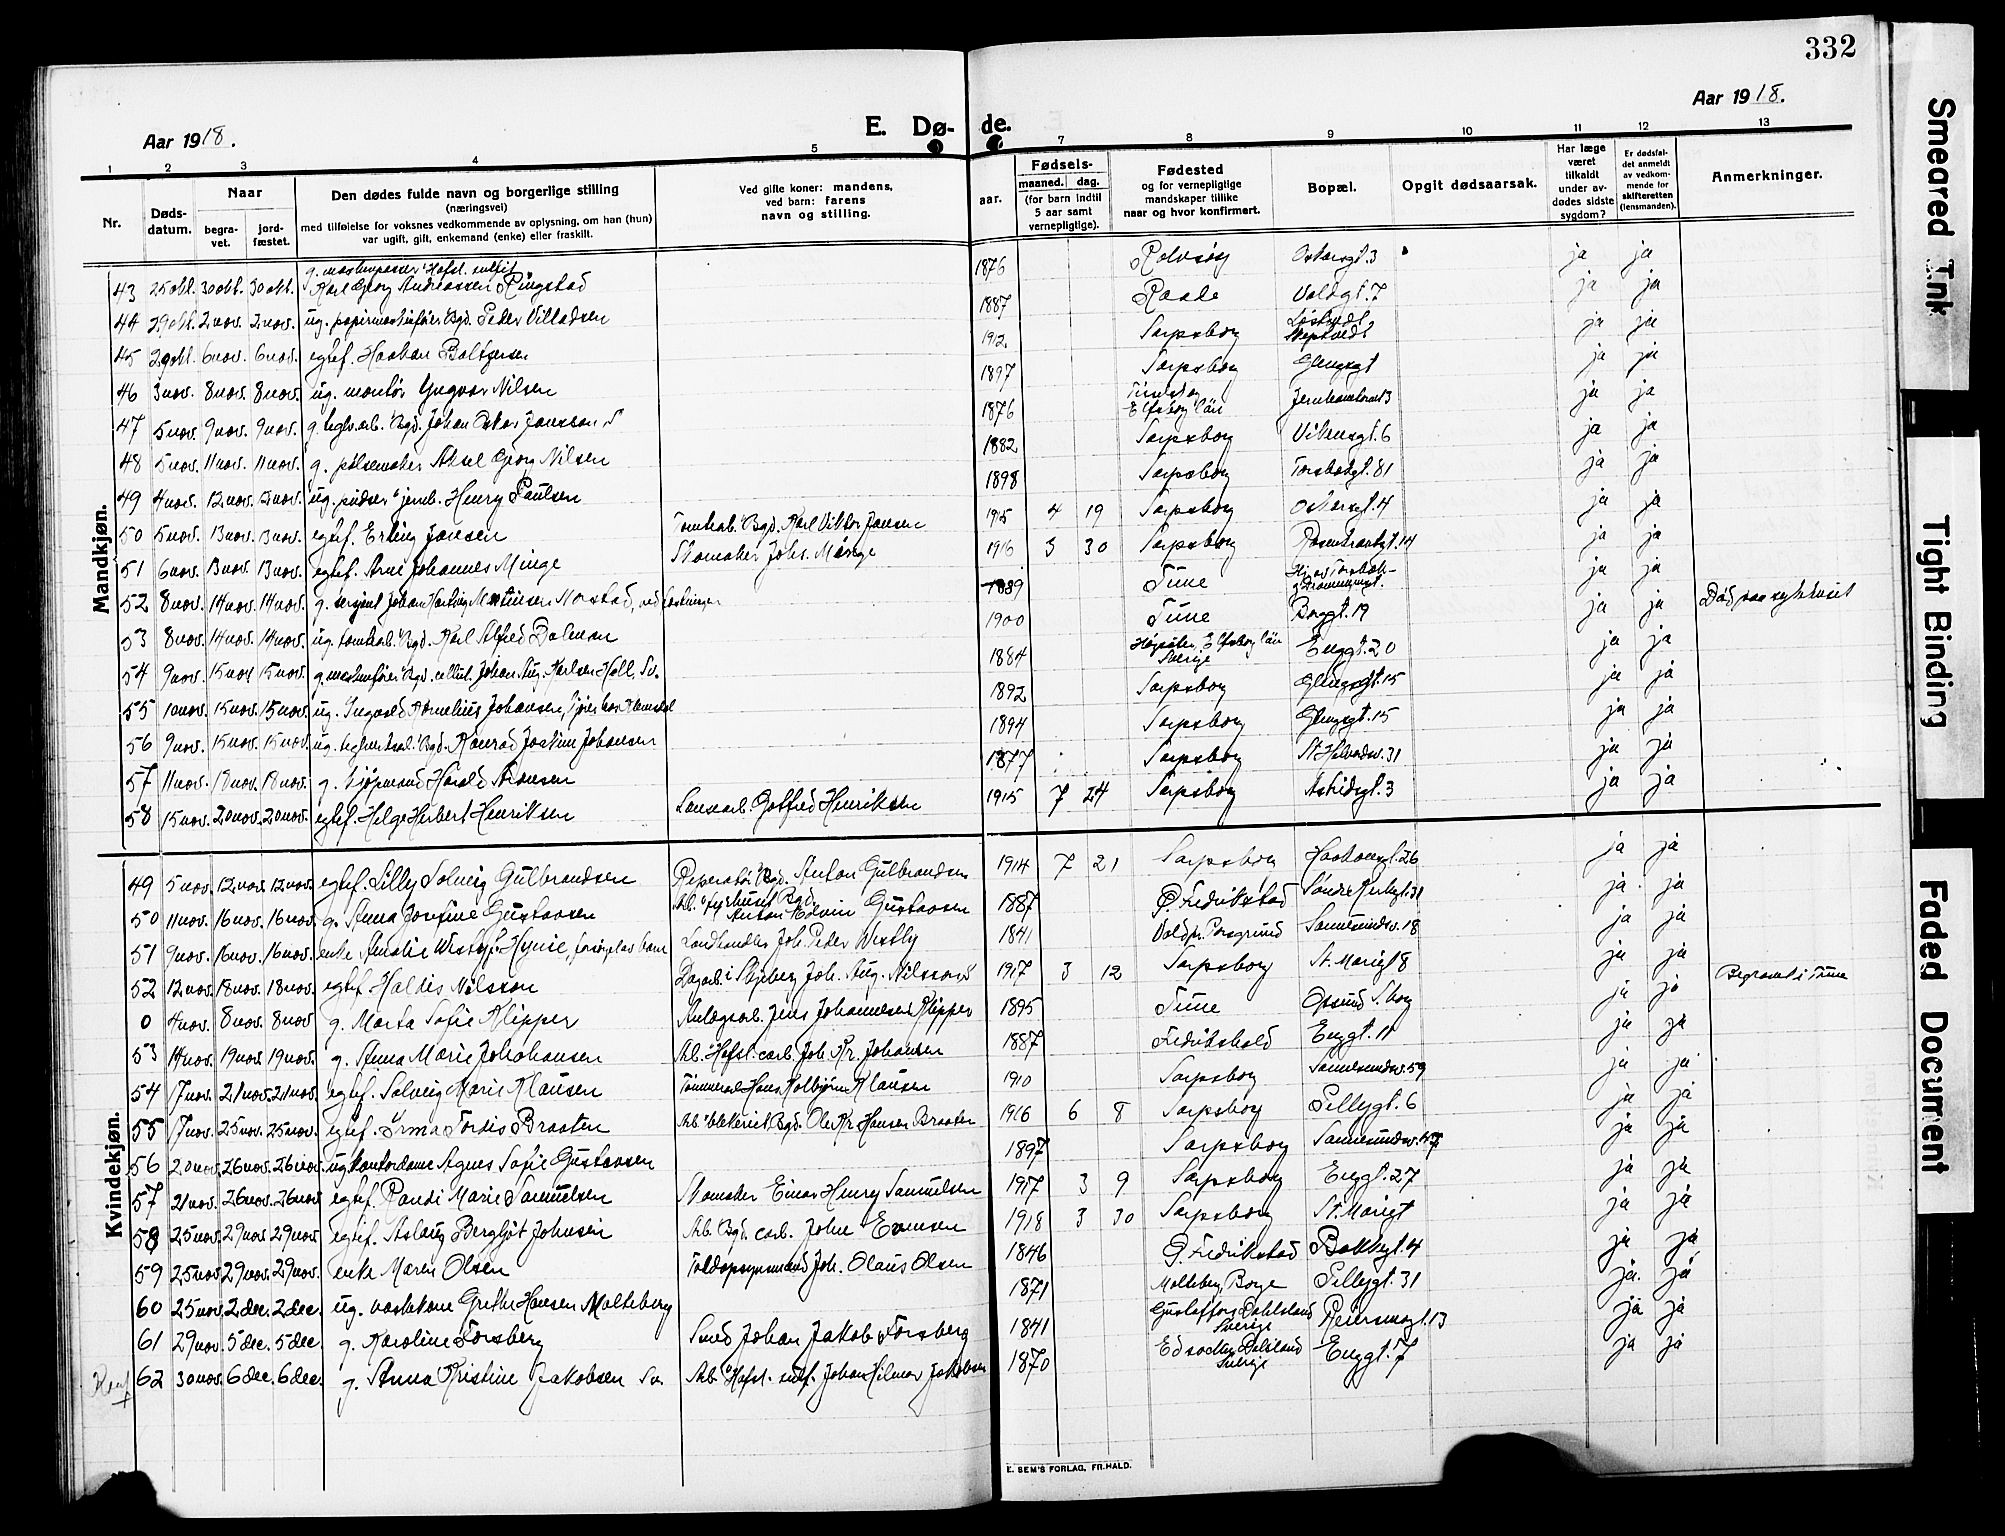 332
Aar 1918.
Aar 1918.
E. Dø- de.
1 2 3 4 5 7 8 9 10 11 12 13
Nr.
Døds-
datum.
Naar
begra-
vet.
jord-
fæstet.
Den dødes fulde navn og borgerlige stilling
(næringsvei)
med tilføielse for voksnes vedkommende av oplysning, om han (hun)
var ugift, gift, enkemand (enke) eller fraskilt.
Ved gifte koner: mandens,
ved barn: farens
navn og stilling.
Fødsels-
aar.
maaned. dag.
(for barn indtil
5 aar samt
vernepligtige).
Fødested
og for vernepligtige
mandskaper tillike
naar og hvor konfirmert.
Bopæl.
Opgit dødsaarsak.
Har læge
været
tilkaldt
under av-
dødes sidste
sygdom?
Er dødsfal-
det anmeldt
av vedkom-
mende for
skifteretten
(lensmanden).
Anmerkninger.
Mandkjøn.
43 25 okt. 30 okt. 30 okt. Karl Georg Andreassen Ringstad 1876 Rolvsøy Oskarsgt. 3 ja ja
44 29 okt. 2 nov. 2 nov. ug. papirmaskinfører Bgd. Peter Villadsen 1887 Raade Voldgt. 7 ja ja
45 29 okt. 6 nov. 6 nov. egtef. Haakon Baltzersen 1912 Sarpsborg ja ja
46 3 nov. 8 nov. 8 nov. ug. montør Yngvar Nilsen 1897 Sarpsborg Glengsgt ja ja
47 5 nov. 9 nov. 9 nov. g. Bgd. Johan Oskar Jonsson 1876 Elfsborg län ja ja
48 5 nov. 11 nov. 11 nov. g. pølsemaker Aksel Georg Nilsen 1882 Sarpsborg Vikensgt. 6 ja ja
49 4 nov. 12 nov. 12 nov. ug. pudser jernb. Henry Paulsen 1898 Sarpsborg Torsbekgt. 81 ja ja
50 5 nov. 13 nov. 13 nov. egtef. Erling Jansen Tomtearb. Bgd. Karl Viktor Jansen 1915 4 19 Sarpsborg Oskarsgt. 4 ja ja
51 6 nov. 13 nov. 13 nov. egtef. Arne Johannes Minge Skomaker Johs. Minge 1916 3 30 Sarpsborg Rosenkrantzgt. 14 ja ja
52 8 nov. 14 nov. 14 nov. g. sersjant Johan Hartvig Martinsen Norstad, ved 1889 Tune ja ja
53 8 nov. 14 nov. 14 nov. ug. tomtearb. Bgd. Karl Alfred Dalman 1900 Tune Borggt. 19 ja ja Død paa sykehuset
54 9 nov. 15 nov. 15 nov. g. maskinfører Bgd. cellul. Johan Aug. Karlsen Hall, Sv. 1884 Elfsborg län ja ja
Sverige Enggt. 20
55 10 nov. 15 nov. 15 nov. ug. Ingvald Kornelius Johansen, 1892 Sarpsborg Glengsgt. 15 ja ja
56 9 nov. 15 nov. 15 nov. ug. Bgd. Konrad Joakim Johansen 1894 Sarpsborg Glengsgt. 15 ja ja
57 11 nov. 18 nov. 18 nov. g. kjøpmand Harald Aronsen 1877 Sarpsborg St. Halvardsv. 31 ja ja
58 15 nov. 20 nov. 20 nov. egtef. Helge Herbert Henriksen Gotfred Henriksen 1915 7 24 Sarpsborg Astridsgt. 3 ja ja
Kvindekjøn.
49 5 nov. 12 nov. 12 nov. egtef. Lilly Solveig Gulbrandsen Reperatør Bgd. Anton Gulbrandsen 1914 7 21 Sarpsborg Haakonsgt. 26 ja ja
50 11 nov. 16 nov. 16 nov. g. Anna Josefine Gustavsen Arb. fyrhuset Bgd.
Anton Edvin Gustavsen 1887 G. Fredrikstad Søndre Kirkegt. 31 ja ja
51 9 nov. 16 nov. 16 nov. enke Amalie Westby f. Landhandler Joh. Peter Westby 1841 Porsgrund Sannesundsv. 18 ja ja
52 12 nov. 18 nov. 18 nov. egtef. Haldis Nilsson Joh. Aug. Nilsson 1917 3 12 Sarpsborg St. Mariegt 8 ja ja
0 4 nov. 8 nov. 8 nov g. Marta Sofie Klipper Anlægsarb. Jens Johannesen Klipper 1895 Tune Opsund S.borg ja ja Begravet i Tune
53 14 nov. 19 nov. 19 nov. g. Anna Marie Johohansen Arb. Hafsl. carb. Joh. Kr. Johansen 1887 Fredrikshald Enggt. 11 ja ja
54 17 nov. 21 nov. 21 nov. egtef. Solveig Marie Klausen Tømmerarb. Hans Kolbjørn Klausen 1910 Sarpsborg Sannesundsv. 59 ja ja
55 17 nov. 25 nov. 25 nov. egtef. Irma Tordis Braaten Arb. Bgd. Ole Kr. Hansen Braaten 1916 6 8 Sarpsborg Pellygt. 6 ja ja
56 20 nov. 26 nov. 26 nov ug. kontordame Agnes Sofie Gustavsen 1897 Sarpsborg Sannesundsv. 47 ja ja
57 21 nov. 26 nov. 26 nov egtef. Randi Marie Samuelsen Skomaker Einar Henry Samuelsen 1917 3 9 Sarpsborg Enggt. 27 ja ja
58 25 nov. 29 nov. 29 nov. egtef. Aslaug Bergljot Johnsen Arb. Bgd. carb. John Evensen 1918 3 30 Sarpsborg St. Mariegt ja ja
59 25 nov 29 nov. 29 nov. enke Maren Olsen Toldopsynsmand Joh. Olaus Olsen 1846 G. Fredrikstad Bakkegt. 4 ja ja
60 25 nov. 2 dec. 2 dec. ug. vaskekone Grethe Hansen Molteberg 1871 Molteberg, Borge Pellygt. 31 ja ja
61 29 nov. 5 dec. 5 dec. g. Karoline Forsberg Smed Johan Jakob Forsberg 1841 Gustafsfors Dahlsland
Sverige Reiersensgt. 13 ja ja
62 30 nov. 6 dec. 6 dec. g. Anna Kristine Jakobsen Sv. Arb. Hafsl. sulf. Johan Hilmar Jakobsen 1870 Dalsland
Sverige Enggt. 7 ja ja
E. SEM'S FORLAG, FR.HALD.
Smeared Ink
Tight Binding
Faded Document